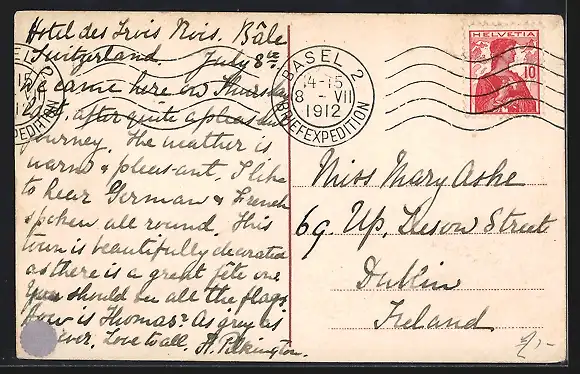 Hotel des Trois Rois. Bâle
Switzerland July 8th.
We came here on Thursday
last, after quite a pleasant
journey. The weather is
warm & pleasant. I like
to hear German & French
spoken all round. This
town is beautifully decorated
as there is a great fête on
You should see all the flags
How is Thomas? As grey as
ever. Love to all. A. Pilkington.
HELVETIA
10
BASEL 2
14-15
8 - VII
1912
BRIEFEXPEDITION
Miss Mary Ashe
69. Up. Leeson Street
Dublin
Ireland